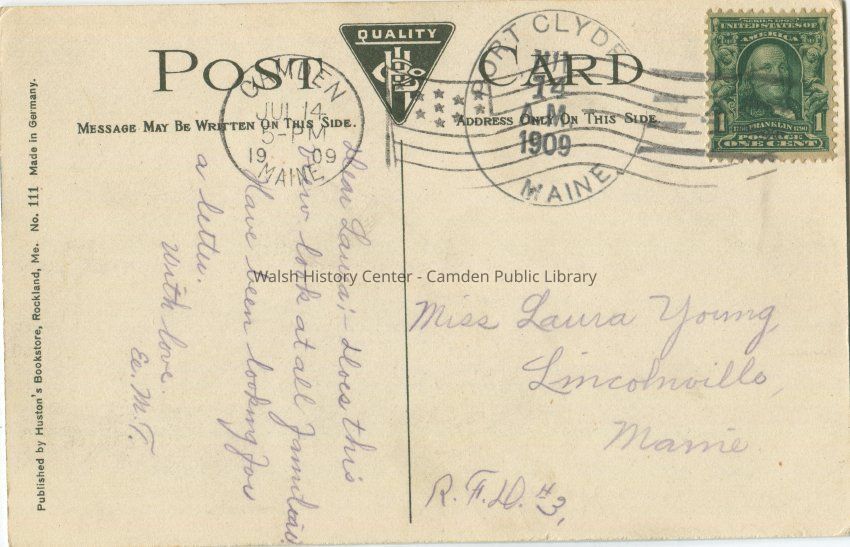 POST CARD
QUALITY
H Co
MESSAGE MAY BE WRITTEN ON THIS SIDE.
ADDRESS ONLY ON THIS SIDE
CAMDEN
JUL 14
5-PM
1909
MAINE
PORT CLYDE
JUL
14
A.M.
1909
MAINE
SERIES 1902
UNITED STATES OF AMERICA
1 FRANKLIN 1
POSTAGE
ONE CENT
Dear Laura;- Does this
view look at all familiar
Have been looking for
a letter.
With love.
Ee. M. T.
Miss Laura Young
Lincolnville,
Maine
R. F. D. #3,
Published by Huston's Bookstore, Rockland, Me. No. 111 Made in Germany.
Walsh History Center - Camden Public Library